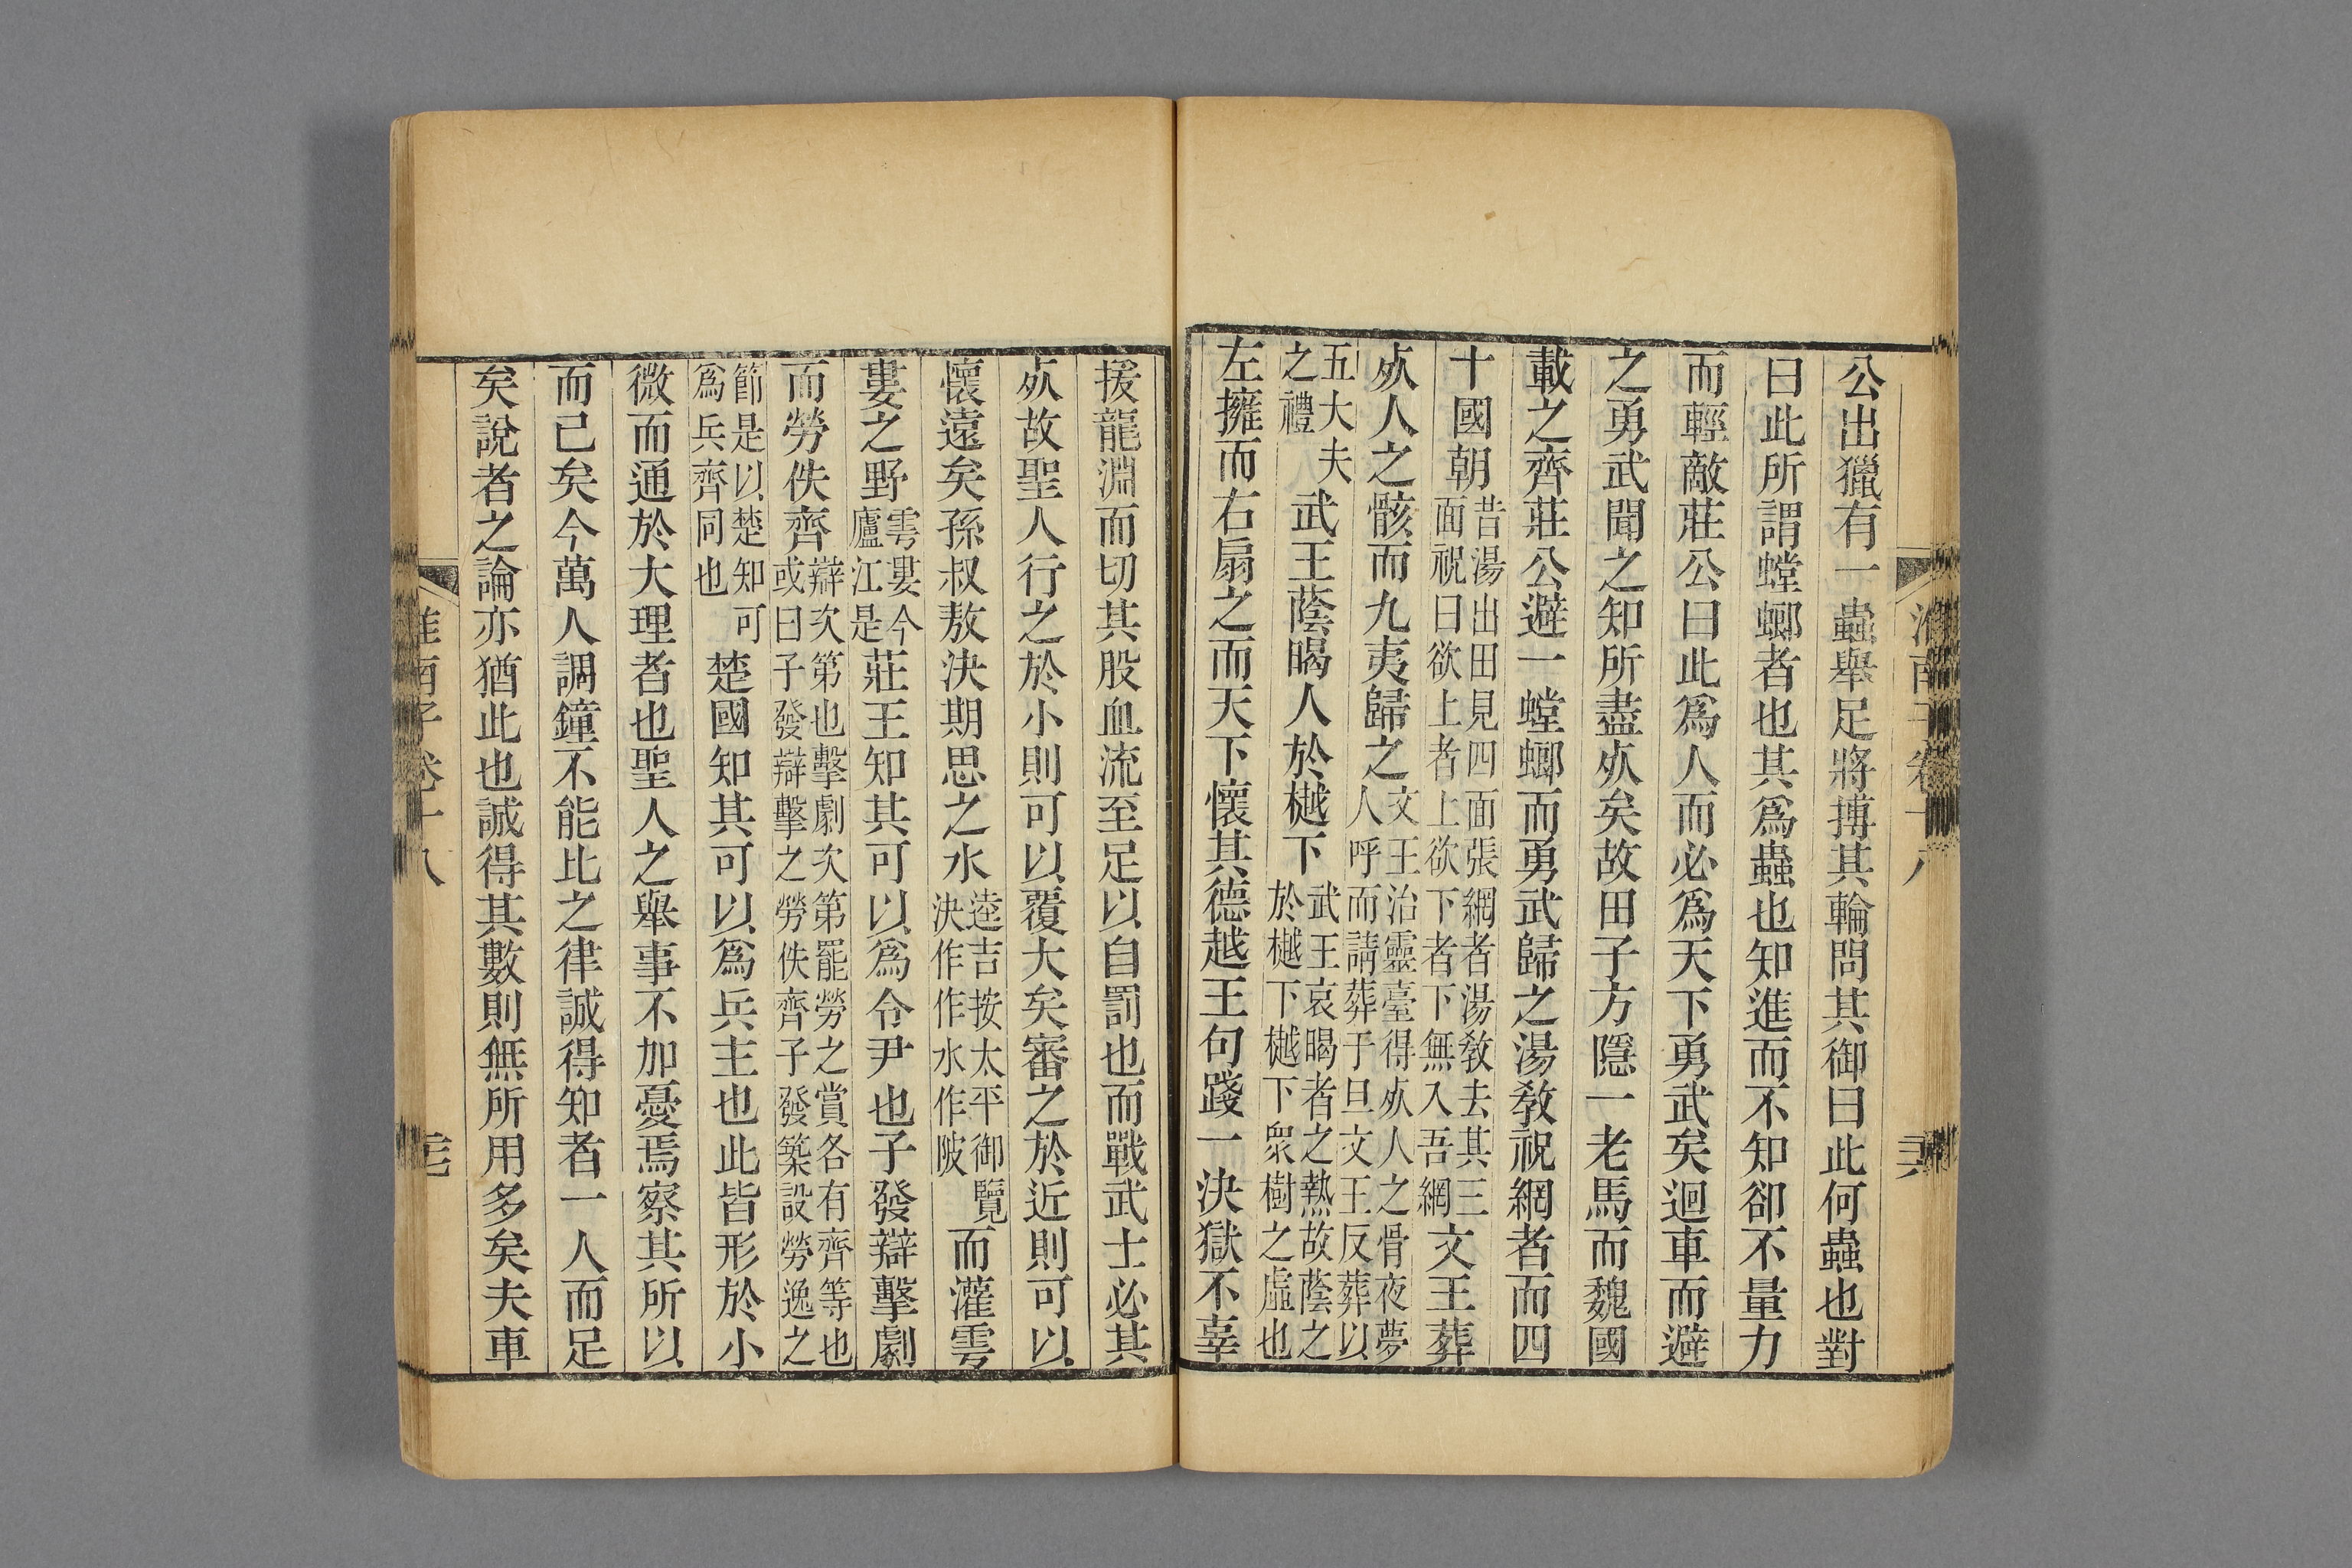 淮南子卷十八
公出獵有一蟲舉足將搏其輪問其御曰此何蟲也對
曰此所謂螳螂者也其爲蟲也知進而不知卻不量力
而輕敵莊公曰此爲人而必爲天下勇武矣迴車而避
之勇武聞之知所盡死矣故田子方隱一老馬而魏國
載之齊莊公避一螳螂而勇武歸之湯敎祝網者而四
十國朝昔湯出田見四面張網者湯敎去其三面祝曰欲上者上欲下者下無入吾網文王葬
死人之骸而九夷歸之文王治靈臺得死人之骨夜夢人呼而請葬于旦文王反葬以
五大夫之禮武王蔭暍人於樾下武王哀暍者之熱故蔭之於樾下樾下衆樹之虛也
左擁而右扇之而天下懷其德越王句踐一決獄不辜
援龍淵而切其股血流至足以自罰也而戰武士必其
死故聖人行之於小則可以覆大矣審之於近則可以
懷遠矣孫叔敖決期思之水逵吉按太平御覽決作作水作陂而灌雩
婁之野雩婁今廬江是莊王知其可以爲令尹也子發辯擊劇
而勞佚齊辯次第也擊劇次第罷勞之賞各有齊等也或曰子發辯擊之勞佚齊子發築設勞逸之
節是以楚知可爲兵齊同也楚國知其可以爲兵主也此皆形於小
微而通於大理者也聖人之舉事不加憂焉察其所以
而已矣今萬人調鐘不能比之律誠得知者一人而足
矣說者之論亦猶此也誠得其數則無所用多矣夫車
淮南子卷十八